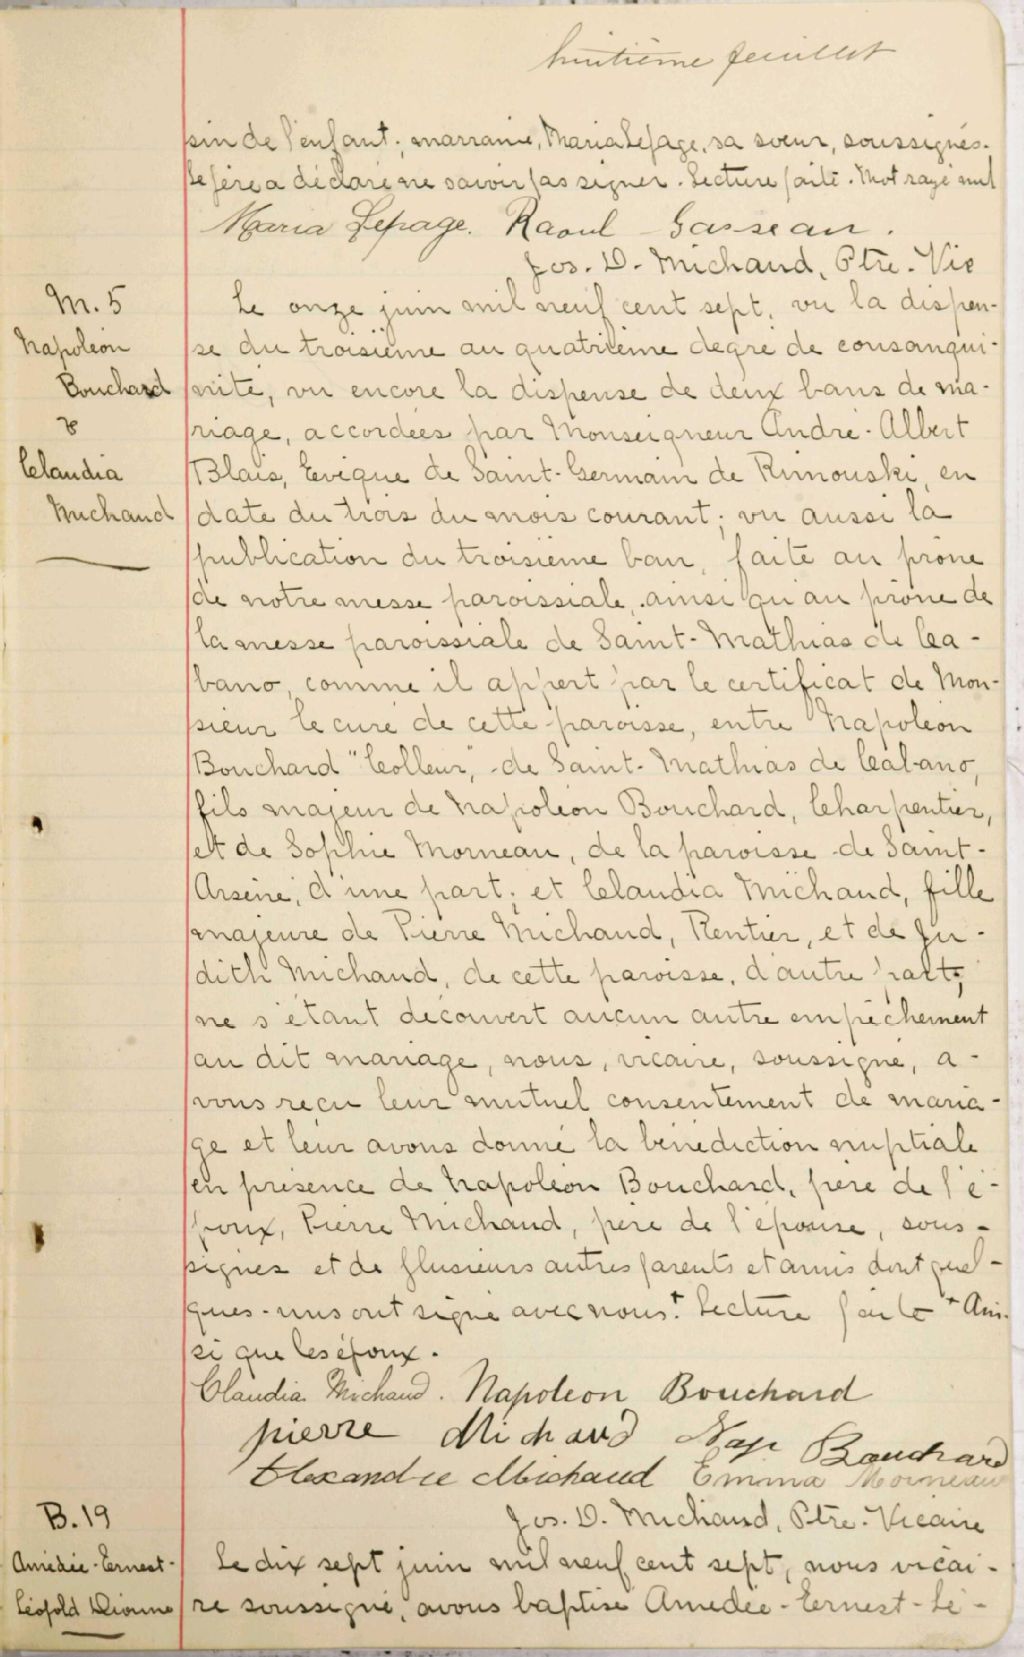 huitième feuillet
sin de l'enfant; marraine, Maria Lepage, sa soeur, soussignés.
Le père a déclaré ne savoir pas signer. Lecture faite. Mot rayé nul
Maria Lepage. Raoul Gasseau.
Jos. D. Michaud, Ptre. Vic
M. 5
Napoléon
Bouchard
&
Claudia
Michaud
Le onze juin mil neuf cent sept, vu la dispen-
se du troisième au quatrième degré de consangui-
nité, vu encore la dispense de deux bans de ma-
riage, accordées par Monseigneur André-Albert
Blais, Evêque de Saint-Germain de Rimouski, en
date du trois du mois courant; vu aussi la
publication du troisième ban, faite au prône
de notre messe paroissiale, ainsi qu'au prône de
la messe paroissiale de Saint-Mathias de Ca-
bano, comme il appert par le certificat de Mon-
sieur le curé de cette paroisse, entre Napoléon
Bouchard "Colleur," de Saint-Mathias de Cabano,
fils majeur de Napoléon Bouchard, Charpentier,
et de Sophie Morneau, de la paroisse de Saint-
Arsène, d'une part; et Claudia Michaud, fille
majeure de Pierre Michaud, Rentier, et de Ju-
dith Michaud, de cette paroisse, d'autre part;
ne s'étant découvert aucun autre empêchement
au dit mariage, nous, vicaire, soussigné, a-
vons reçu leur mutuel consentement de maria-
ge et leur avons donné la bénédiction nuptiale
en présence de Napoléon Bouchard, père de l'é-
poux, Pierre Michaud, père de l'épouse, sous-
signés et de plusieurs autres parents et amis dont quel-
ques-uns ont signé avec nous.+ Lecture faite + Ain-
si que les époux.
Claudia Michaud. Napoleon Bouchard
pierre Michaud Nap Bouchard
Alexandre Michaud Emma Morneau
Jos. D. Michaud, Ptre. Vicaire
B. 19
Amédée-Ernest-
Léopold Dionne
Le dix sept juin mil neuf cent sept, nous vicai-
re soussigné, avons baptisé Amédée-Ernest-Lé-